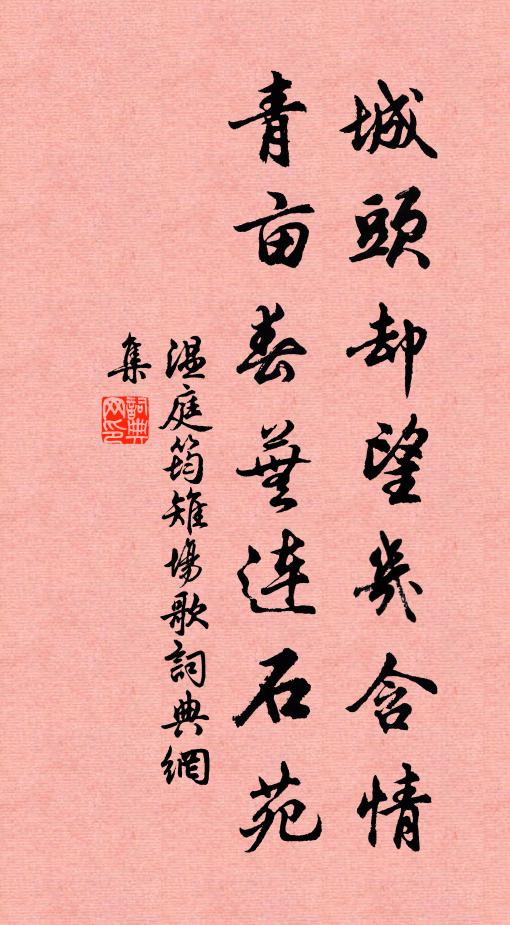 城頭却望幾含情
青亩春蕪連石苑
温庭筠雉場歌詞典網
集
詞典網印